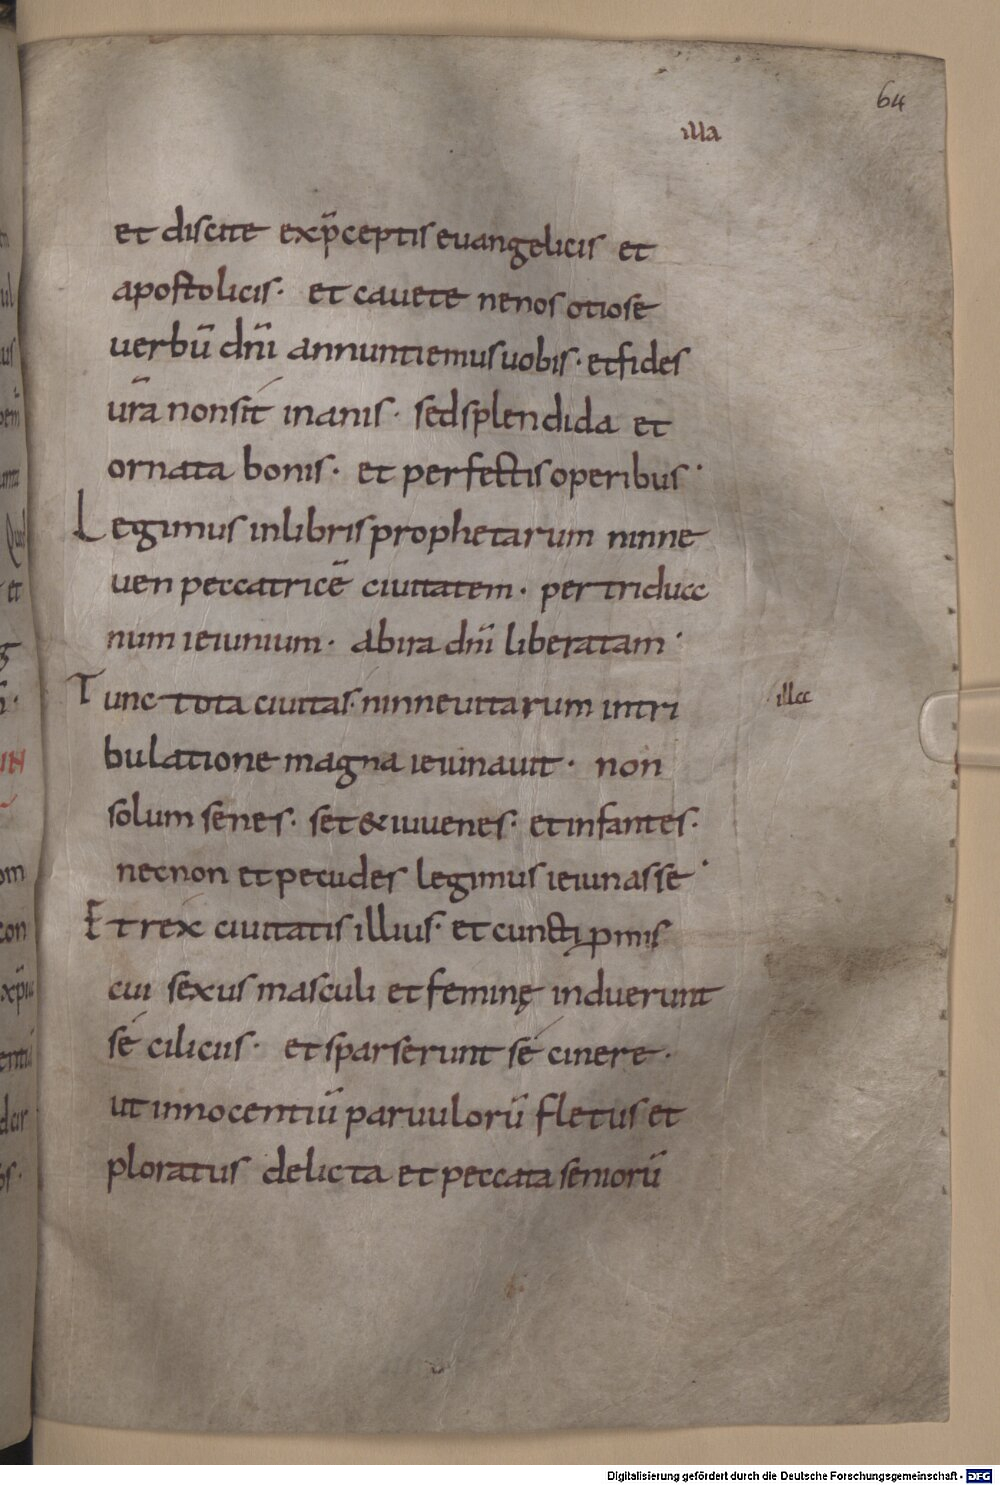 64
illa
et discite exp̄ceptis euangelicis et
apostolicis · et cauete nenos otiose
uerbū dn̄i annuntiemus uobis · et fides
ur̄a nonsit inanis · sed splendida et
ornata bonis · et perfectis operibus ·
Legimus inlibris prophetarum ninne
uen peccatricē ciuitatem · per tridua
num ieiunium · abira dn̄i liberatam ·
Tunc tota ciuitas · ninneuitarum intri
illa
bulatione magna ieiunauit · non
solum senes · set & iuuenes · et infantes ·
necnon et pecudes legimus ieiunasse ·
Et rex ciuitatis illius · et cuncti ꝓmis
cui sexus masculi et feminę induerunt
sé ciliciis · et sparserunt sé cinere ·
ut innocentiū paruulorū fletus et
ploratus delicta et peccata seniorū
Digitalisierung gefördert durch die Deutsche Forschungsgemeinschaft - DFG